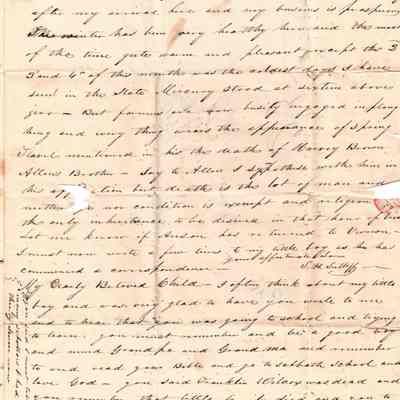 after my arrival here and my business is prospering
The winter has been very healthy here and the most
of the time quite warm and pleasant except the 3
3 and 4th of this months was the coldest days I have
seen in the State Mercury Stood at sixteen above
zero – But farmers are now busily engaged in plowing
and every thing wears the appearance of Spring
mentioned in his the death of Harvey Brown
Allens Brother – Say to Allen I Sympathise with him in
this affliction but death is the lot of man and
neither age nor condition is exempt and religion is
the only inheritance to be desired in that hour of
Let me know if Anson has returned to Vernon –
I must now write a few lines to my little boy as he has
commenced a correspondence –
your affectionate Son
My Dearly Beloved Child – I often think about my little
boy and was very glad to have you write to me
and to hear that you was going to school and trying
to learn. you must remember and be a good boy
and mind Grandpa and Grandma and remember
to and read your Bible and go to Sabbath School and
love God – you said Franklin Wilcox was dead and
you remember that little